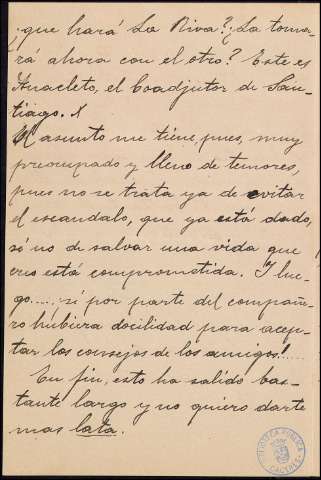 ¿que hará La Riva? ¿La toma-
rá ahora con el otro? Este es
Anacleto, el Coadjutor de San-
tiago. X
El asunto me tiene, pues, muy
preocupado y lleno de temores,
pues no se trata ya de evitar
el escandalo, que ya está dado,
só no de salvar una vida que
creo está comprometida. Y lue-
go..... si por parte del compañe-
ro hubiera docilidad para acep-
tar los consejos de los amigos!....
En fin, esto ha salido bas-
tante largo y no quiero darte
mas lata.
BIBLIOTECA PUBLICA
CACERES